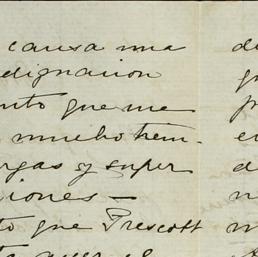 causa una d
dignacion
nto que me p
mucho tiem- e
rgas y super d
iones — n
to que Prescott m